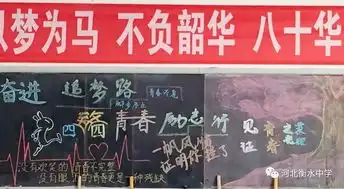 以梦为马 不负韶华 八十华
奋进 追梦路
四 青春 励志行
一帆风顺
证明你整了
见证青春之
没有欢笑的青春不完整
没有眼泪的青春更是一种残缺
河北衡水中学